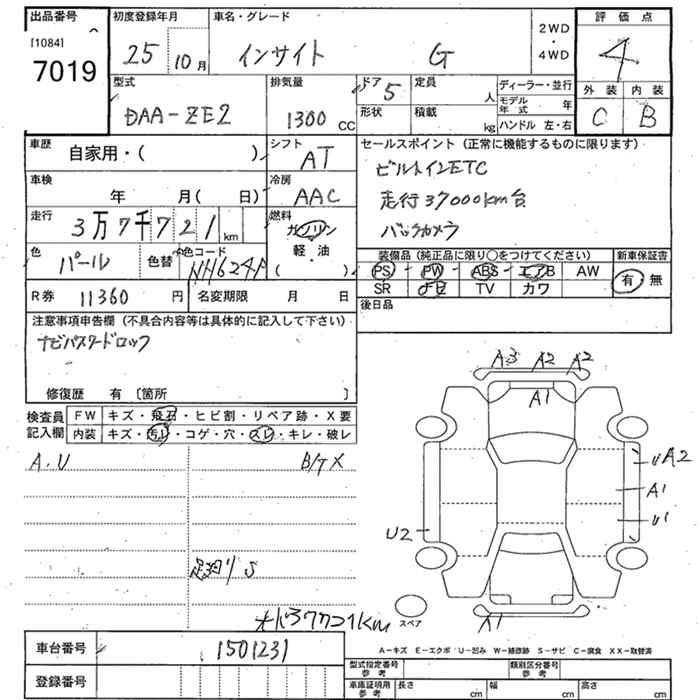 出品番号 初度登録年月 車名・グレード 2WD・4WD 評価点
[1084]
7019 25 10月 インサイト G 4
型式 排気量 ドア 5 定員 人 ディーラー・並行 外装 内装
DAA-ZE2 1300 CC 形状 積載 kg モデル年式 年 C B
ハンドル 左・右
車歴 自家用・( ) シフト AT セールスポイント(正常に機能するものに限ります)
ビルトインETC
車検 年 月( 日) 冷房 AAC 走行37000km台
走行 3万7千721km 燃料 ガソリン バックカメラ
軽・油
( )
色 パール 色替 色コード NH624P 装備品(純正品に限り○をつけてください) 新車保証書
PS・PW・ABS・エアB AW 有・無
SR ナビ TV カワ
R券 11360 円 名変期限 月 日 後日品
注意事項申告欄(不具合内容等は具体的に記入して下さい)
ナビパスワードロック
修復歴 有〔箇所 〕
検査員記入欄 FW キズ・飛石・ヒビ割・リペア跡・X要
内装 キズ・汚レ・コゲ・穴・スレ・キレ・破レ
A3 A2 A2
A1
A・U B/T X
U A2
A1
U1
U2
足廻り S
オド37721km
スペア
A1
A-キズ E-エクボ U-凹み W-補修跡 S-サビ C-腐食 XX-取替済
車台番号 1501231
登録番号
型式指定番号 参考 類別区分番号 参考
車庫証明用 参考 長さ cm 幅 cm 高さ cm